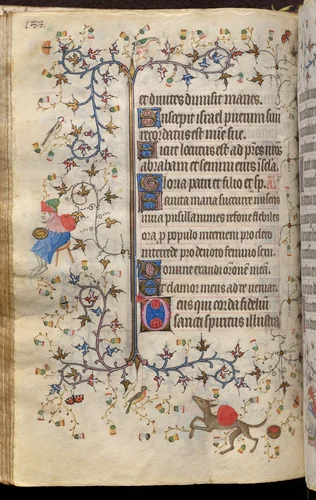 133.
et divites dimisit inanes.
Suscepit israel puerum suu
recordatus est mīe sue.
Sicut locutus est ad pr̄es nr̄os
abraham et semini eius i secla.
Gloria patri et filio et sp̄.
Sancta maria succurre miseris
iuva pusillanimes refove flebiles
ora p̄ populo interveni pro clero
intercede pro devoto femineo sexu.
Domine exaudi or̄onē meā.
Et clamor meus ad te veniat.
Deus qui corda fidelium
sancti spiritus illustra